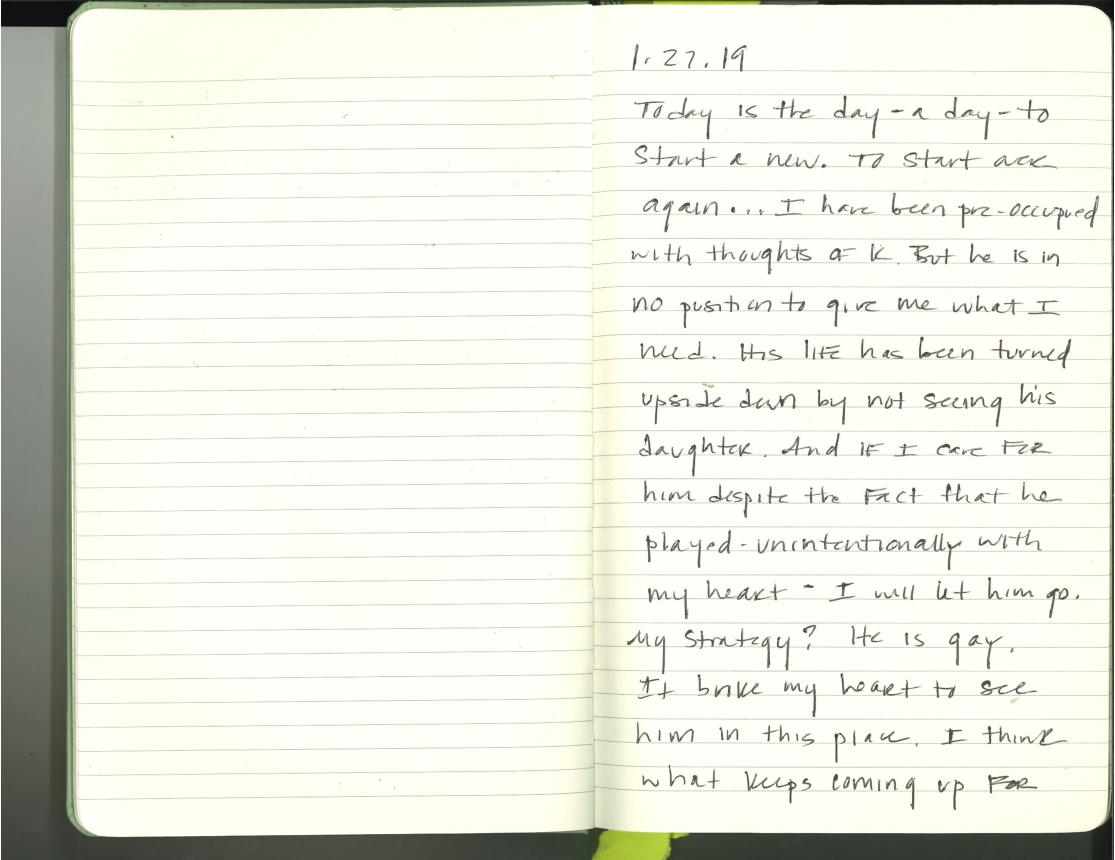 1.27.19
Today is the day - a day - to
Start a new. To start
again... I have been pre-occupied
with thoughts of K. But he is in
no position to give me what I
need. His life has been turned
upside down by not seeing his
daughter. And if I care for
him despite the fact that he
played - unintentionally with
my heart - I will let him go.
My strategy? He is gay.
It broke my heart to see
him in this place. I think
what keeps coming up for